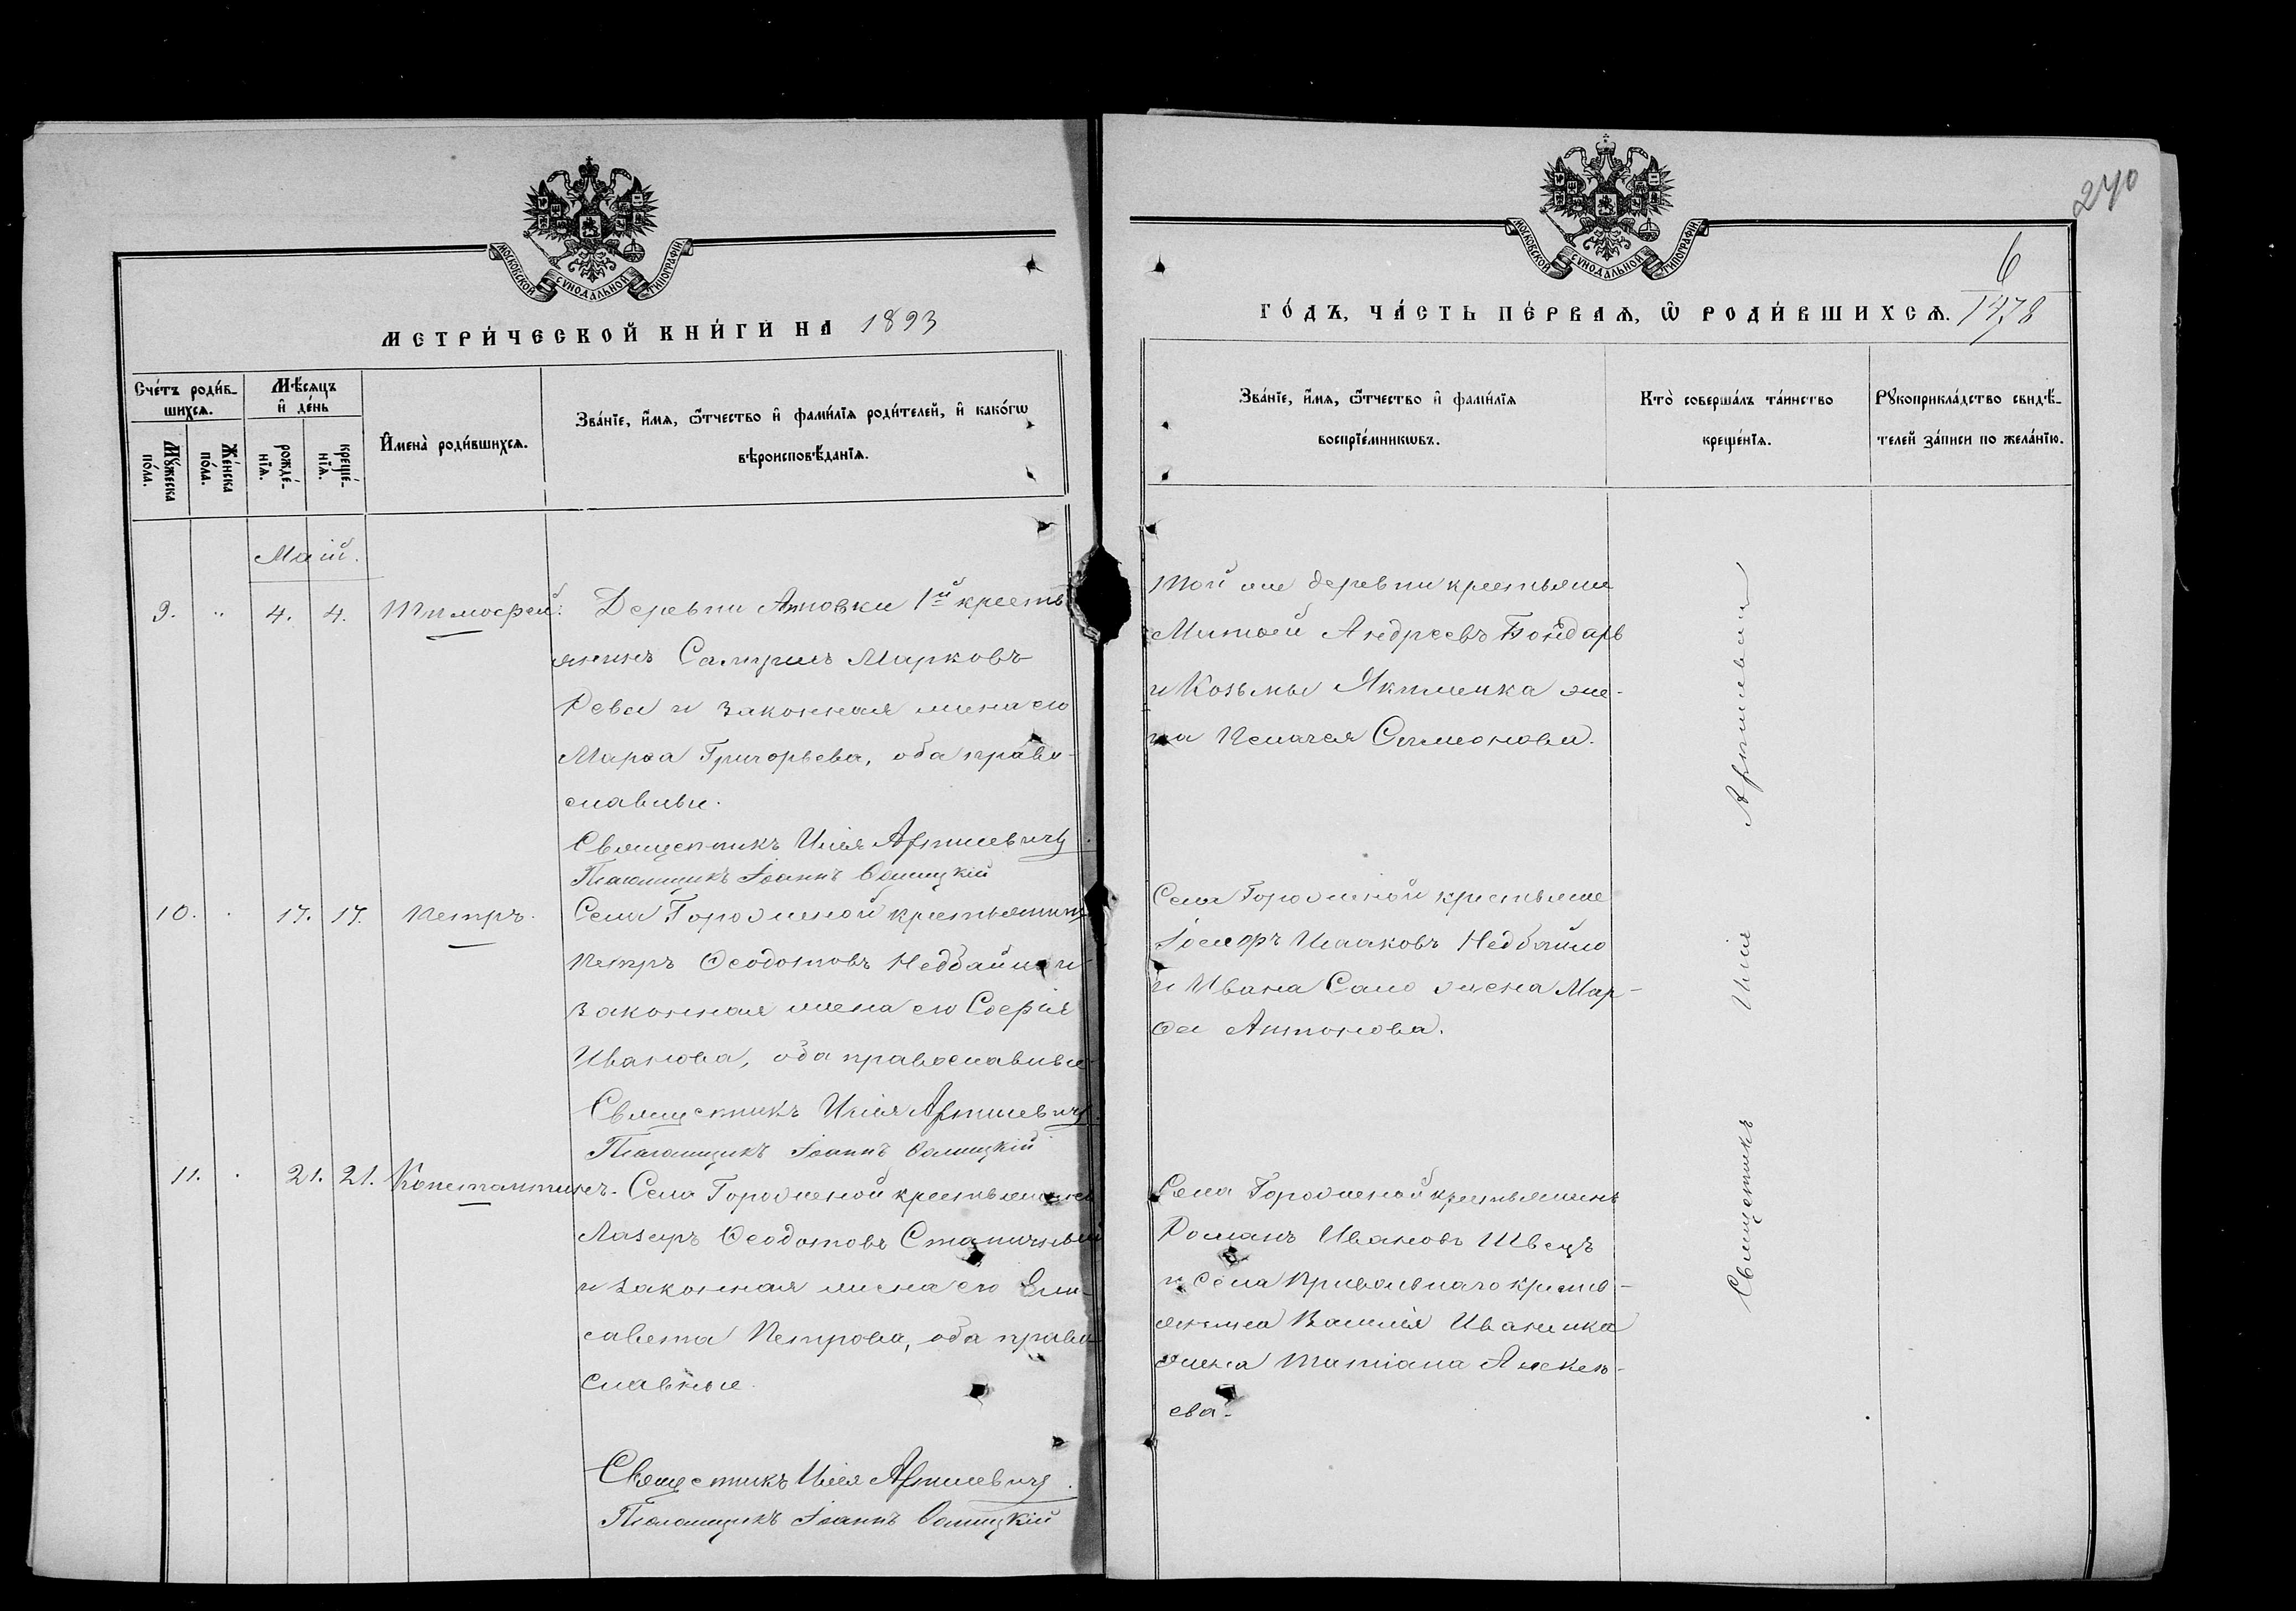 240
6
1478
МОСКОВСКОЙ СѴНОДАЛЬНОЙ ТИПОГРАФІИ
МОСКОВСКОЙ СѴНОДАЛЬНОЙ ТИПОГРАФІИ
МЕТРИ́ЧЕСКОЙ КНИ́ГИ НА 1893
ГО́ДЪ, ЧА́СТЬ ПЕ́РВАѦ, Ѡ РОДИ́ВШИХСѦ.
Сче́тъ роди́в-
шихсѧ.
Мꙋ́жеска по́ла.
Же́нска по́ла.
Мѣ́сяцъ
и҆ де́нь
рожде́-
нїѧ.
креще́-
нїѧ.
И҆мена̀ роди́вшихсѧ.
Зва́нїе, и҆́мѧ, ѻ҆́тчество и҆ фами́лїѧ роди́телей, и҆ како́гѡ
вѣроисповѣ́данїѧ.
Зва́нїе, и҆́мѧ, ѻ҆́тчество и҆ фами́лїѧ
воспрїе́мникѡвъ.
Кто̀ соверша́лъ та́инство
креще́нїѧ.
Рꙋкоприкла́дство свидѣ́-
телей за́писи по жела́нїю.
Май.
9. " 4. 4. Тимофей: Деревни 1й кресть
янинъ Марковъ
Рева и законная жена его
Марѳа Григорьева, оба право-
славные.
Священникъ Илія
Псаломщикъ Іоаннъ
Той же деревни крестьяне
Андреевъ Бондарь
и Козьмы Яктименка же-
на Пелагея Симонова.
10. . 17. 17. Петръ. Села Городжной крестьянинъ
Петръ Ѳеодотовъ Недбайло и
законная жена его Софія
Иванова, оба православные
Священникъ Илія
Псаломщикъ Іоаннъ
Села Городжной крестьяне
Іосифъ Исааковъ Недбайло
и Ивана Сало жена Мар-
ѳа Антонова.
11. . 21. 21. Константинъ. Села Городжной крестьянинъ
Лазарь Ѳеодотовъ
и законная жена его Ели-
савета Петрова, оба право
славные.
Священникъ Илія
Псаломщикъ Іоаннъ
Села Городжной крестьянинъ
Романъ Ивановъ Швецъ
и села Привольнаго кресть-
янина Василія Иваненка
жена Татіана Алексѣ-
ева.
Священникъ Илія